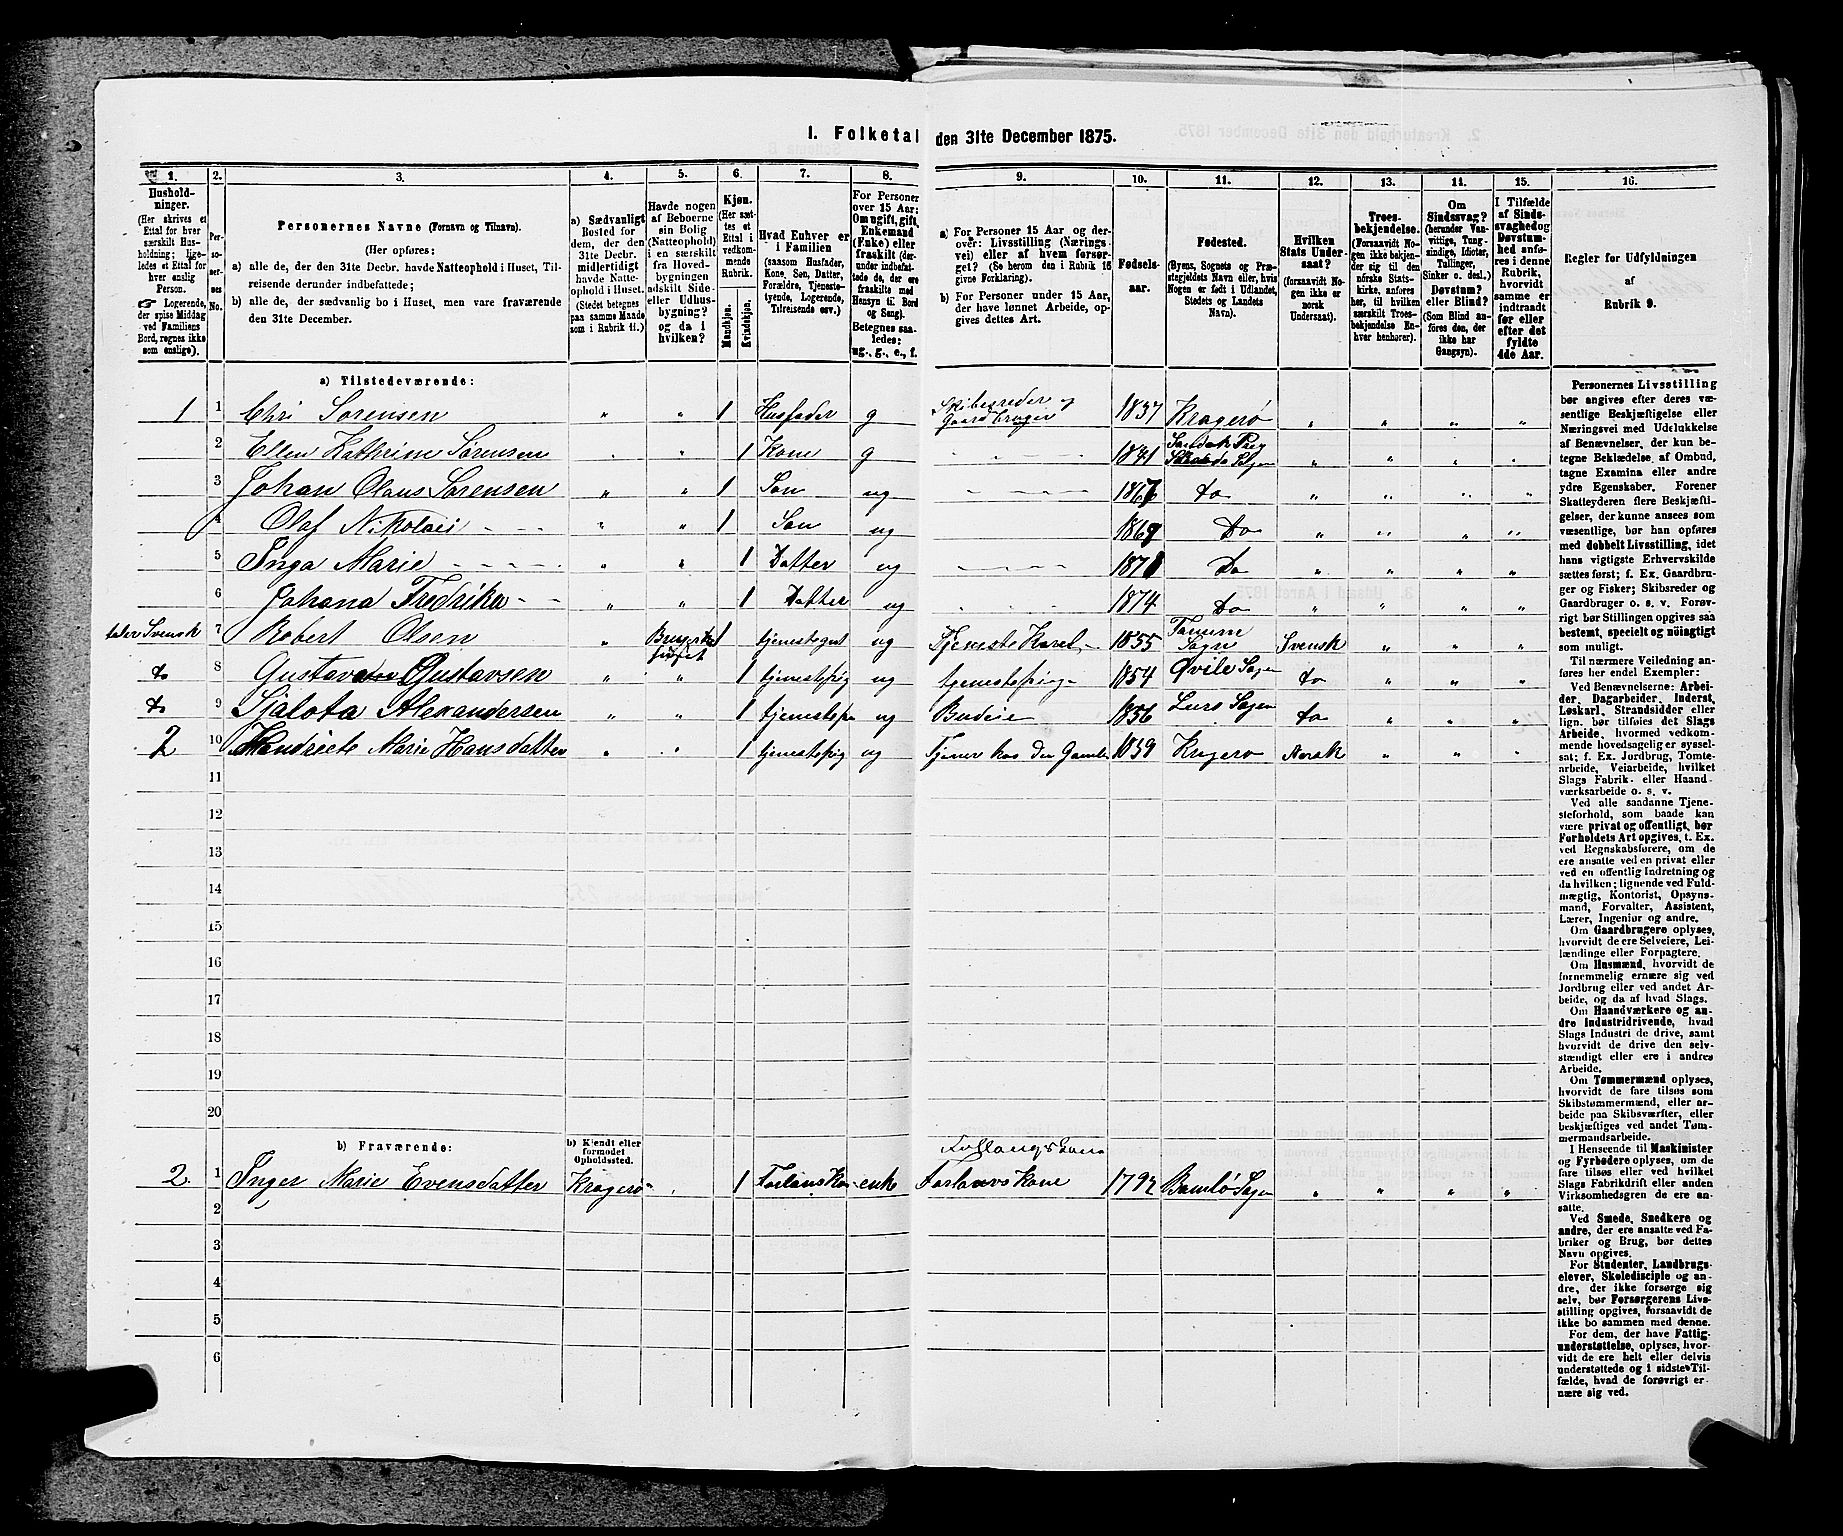 I. Folketal den 31te December 1875.
1. 2. 3. 4. 5. 6. 7. 8. 9. 10. 11. 12. 13. 14. 15. 16.
Husholdninger.
(Her skrives et Ettal for hver særskilt Husholdning; ligeledes et Ettal for hver enslig Person.
☞ Logerende, der spise Middag ved Familiens Bord, regnes ikke som enslige).
Personernes No.
Personernes Navne (Fornavn og Tilnavn).
(Her opføres:
a) alle de, der den 31te Decbr. havde Natteophold i Huset, Tilreisende derunder indbefattede;
b) alle de, der sædvanlig bo i Huset, men vare fraværende den 31te December.
a) Sædvanligt Bosted for dem, der den 31te Decbr. midlertidigt havde Natteophold i Huset.
(Stedet betegnes paa samme Maade som i Rubrik 11.)
Havde nogen af Beboerne sin Bolig (Natteophold) i en særskilt fra Hovedbygningen adskilt Side- eller Udhusbygning? og da i hvilken?
Kjøn.
(Her sættes et Ettal i vedkommende Rubrik.
Mandkjøn.
Kvindekjøn.
Hvad Enhver er i Familien
(saasom Husfader, Kone, Søn, Datter, Forældre, Tjenestetyende, Logerende, Tilreisende osv.)
For Personer over 15 Aar: Om ugift, gift, Enkemand (Enke) eller fraskilt (derunder indbefattede de, der ere fraskilte med Hensyn til Bord og Seng).
Betegnes saaledes: ug., g., e., f.
a) For Personer 15 Aar og derover: Livsstilling (Næringsvei) eller af hvem forsørget? (Se herom den i Rubrik 16 givne Forklaring).
b) For Personer under 15 Aar, der have lønnet Arbeide, opgives dettes Art.
Fødselsaar.
Fødested.
(Byens, Sognets og Præstegjeldets Navn eller, hvis Nogen er født i Udlandet, Stedets og Landets Navn).
Hvilken Stats Undersaat?
(forsaavidt Nogen ikke er norsk Undersaat).
Troesbekjendelse.
(Forsaavidt Nogen ikke bekjender sig til den norske Statskirke, anføres her, til hvilken særskilt Troesbekjendelse Enhver henhører).
Om Sindssvag? (herunder Vanvittige, Tungsindige, Idioter, Tullinger, Sinker o. desl.). Døvstum? eller Blind? (Som Blind anføres den, der ikke har Gangsyn).
I Tilfælde af Sindssvaghed og Døvstumhed anføres i denne Rubrik, hvorvidt samme er indtraadt før eller efter det fyldte 4de Aar.
Regler for Udfyldningen af Rubrik 9.
a) Tilstedeværende:
1 1 Chri Sørensen " " 1 Husfader g Skibsreder og Gaardbruger 1837 Kragerø " " " "
2 Ellen Kathrine Sørensen " " 1 Kone g 1841 Sandøk Prg Sogn " " " "
3 Johan Olaus Sørensen " " 1 Søn ug 1867 do " " " "
4 Olaf Nikolai " " 1 Søn ug Do " " " "
5 Inga Marie " " 1 Datter ug 1871 Do " " " "
6 Johana Fredrika " " 1 Datter ug 1874 do " " " "
taler Svensk 7 Robert Olsen " 1 tjenestegut ug Tjeneste Karel 1855 Tanum Sogn Svensk " " "
do 8 Gustava Gustavsen " " 1 tjenestepig ug tjenestepige 1854 Qvile Sogn do " " "
do 9 Sjalota Alexandersen " " 1 tjenestepi ug Budeie 1856 Lurs Sogn do " " "
2 10 Hendriete Marie Hansdatter " " 1 tjenestepig ug Tjener hos den Gamle 1859 Kragerø Norsk " " "
11
12
13
14
15
16
17
18
19
20
b) Fraværende:
b) Kjendt eller formodet Opholdssted.
2 1 Inger Marie Evensdatter Kragerø " 1 enke 1792 Bamlø Sogn " " " "
2
3
4
5
6
Personernes Livsstilling bør angives efter deres væsentlige Beskjæftigelse eller Næringsvei med Udelukkelse af Benævnelser, der kun betegne Beklædelse af Ombud, tagne Examina eller andre ydre Egenskaber. Forener Skatteyderen flere Beskjæftigelser, der kunne ansees som væsentlige, bør han opføres med dobbelt Livsstilling, idet hans vigtigste Erhvervskilde sættes først; f. Ex. Gaardbruger og Fisker; Skibsreder og Gaardbruger o. s. v. Forøvrigt bør Stillingen opgives saa bestemt, specielt og nøiagtigt som muligt.
Til nærmere Veiledning anføres her endel Exempler:
Ved Benævnelserne: Arbeider, Dagarbeider, Inderst, Løskarl, Strandsidder eller lign. bør tilføies det Slags Arbeide, hvormed vedkommende hovedsagelig er sysselsat; f. Ex. Jordbrug, Tomtearbeide, Veiarbeide, hvilket Slags Fabrik- eller Haandværksarbeide o. s. v.
Ved alle saadanne Tjenesteforhold, som baade kan være privat og offentligt, bør Forholdets Art opgives, t. Ex. ved Regnskabsførere, om de ere ansatte ved en privat eller ved en offentlig Indretning og da hvilken; lignende ved Fuldmægtig, Kontorist, Opsynsmand, Forvalter, Assistent, Lærer, Ingeniør og andre.
Om Gaardbrugere oplyses, hvorvidt de ere Selveiere, Leilændinge eller Forpagtere.
Om Husmænd, hvorvidt de fornemmelig ernære sig ved Jordbrug eller ved andet Arbeide, og da af hvad Slags.
Om Haandværkere og andre Industridrivende, hvad Slags Industri de drive, samt hvorvidt de drive den selvstændigt eller ere i andres Arbeide.
Om Tømmermænd oplyses, hvorvidt de fare tilsøs som Skibstømmermænd, eller arbeide paa Skibsværfter, eller beskjæftiges ved andet Tømmermandsarbeide.
I Henseende til Maskinister og Fyrbødere oplyses, om de fare tilsøs eller ved hvilket Slags Fabrikdrift eller anden Virksomhed de ere ansatte.
Ved Smede, Snedkere og andre, der ere ansatte ved Fabriker og Brug, bør dettes Navn opgives.
For Studenter, Landbrugselever, Skoledisciple og andre, der ikke forsørge sig selv, bør Forsørgerens Livsstilling opgives, forsaavidt de ikke bo sammen med denne.
For dem, der have Fattigunderstøttelse, oplyses, hvorvidt de ere helt eller delvis understøttede og i sidste Tilfælde, hvad de forøvrigt ernære sig ved.